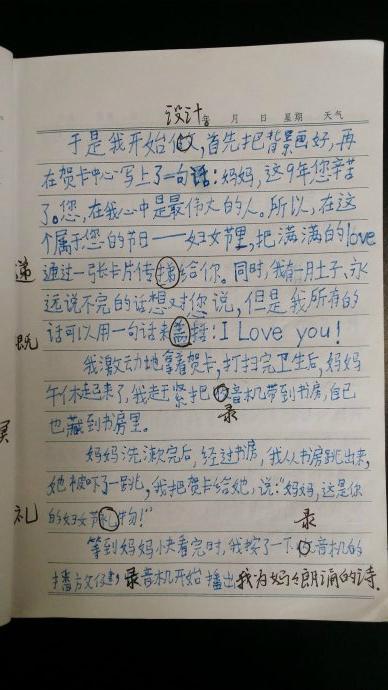 设计
年 月 日 星期 天气
于是我开始做,首先把背景画好,再
在贺卡中心写上了一句话:妈妈,这9年您辛苦
了。您,在我心中是最伟大的人。所以,在这
个属于您的节日——妇女节里,把满满的love
递 通过一张卡片传给你。同时,我有一肚子、永
远说不完的话想对您说,但是我所有的
概 话可以用一句话来括:I Love you!
我激动地拿着贺卡,打扫完卫生后,妈妈
午休起来了,我赶紧把音机带到书房,自己
录
也藏到书房里。
妈妈洗漱完后,经过书房,我从书房跳出来,
她被吓了一跳,我把贺卡给她,说:“妈妈,这是你
礼 的妇女节礼物!”
录
等到妈妈快看完时,我按了一下音机的
播放键,录音机开始播出我为妈妈朗诵的诗.